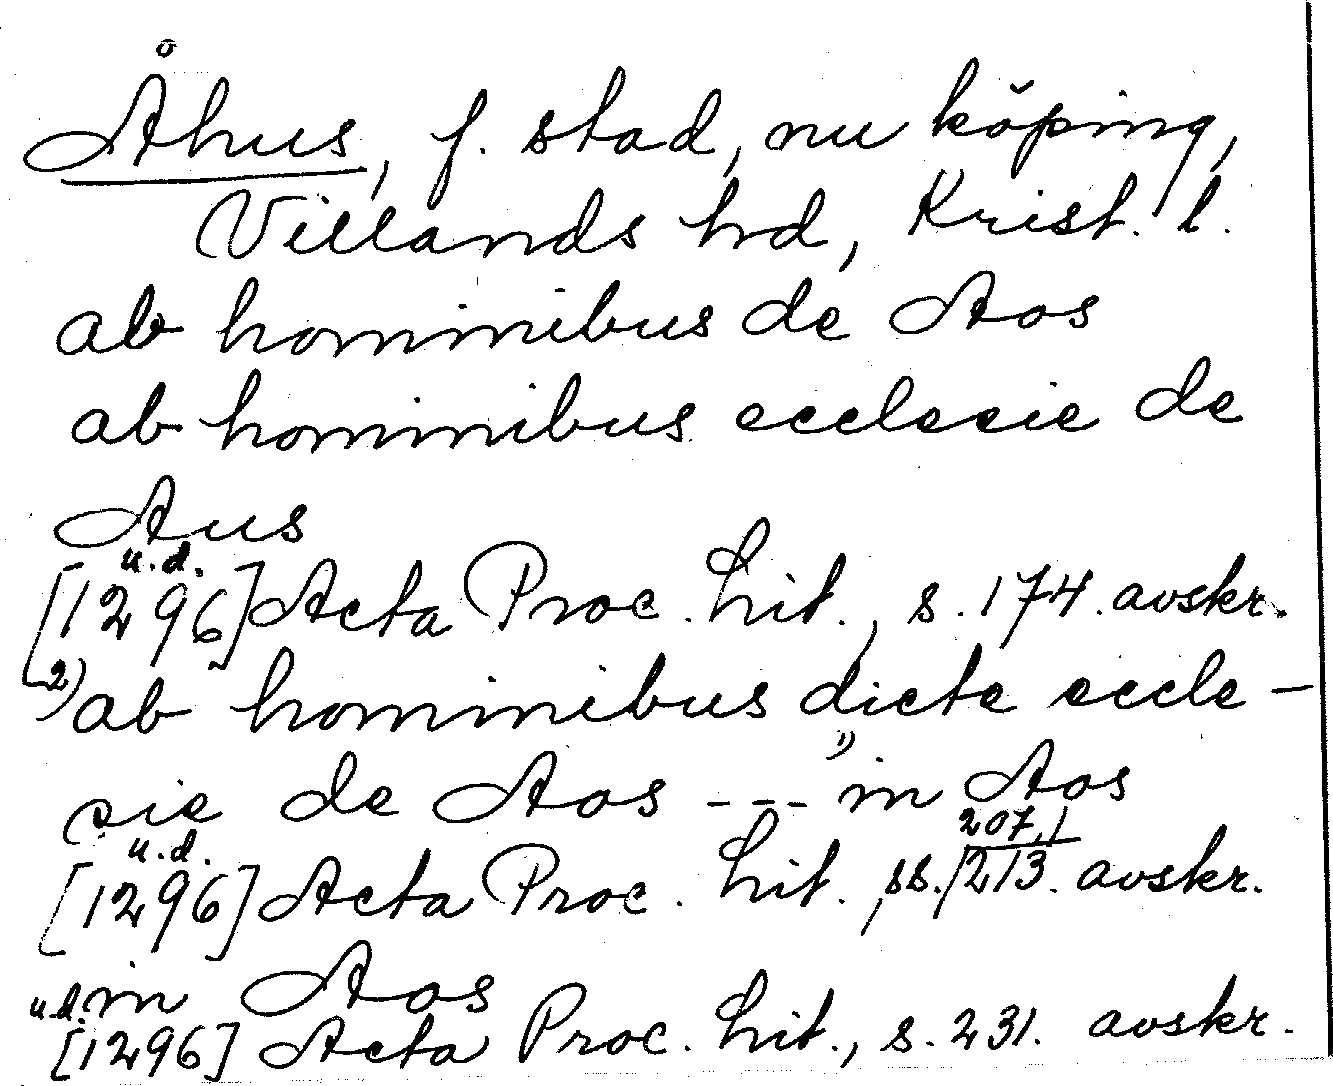 Åhus, f. stad, nu köping,
Villands hd, Krist. l.
ab hominibus de Aos
ab hominibus ecclesie de
Aus
u.d.
[1296] Acta Proc. Lit., s. 174. avskr.
2) ab hominibus dicte eccle-
sie de Aos --- 1) in Aos
u.d. 207,
[1296] Acta Proc. Lit., ss. 213. avskr.
in Aos
u.d. [1296] Acta Proc. Lit., s. 231. avskr.